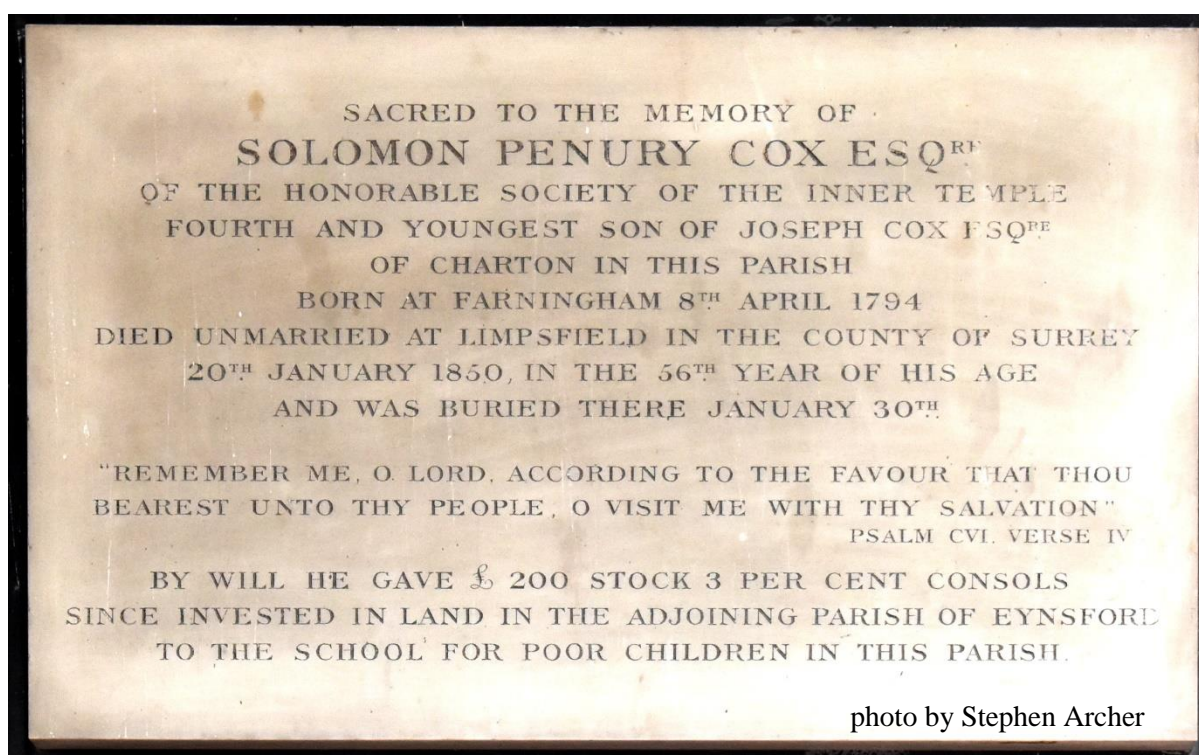 SACRED TO THE MEMORY OF
SOLOMON PENURY COX ESQRE
OF THE HONORABLE SOCIETY OF THE INNER TEMPLE
FOURTH AND YOUNGEST SON OF JOSEPH COX ESQRE
OF CHARTON IN THIS PARISH
BORN AT FARNINGHAM 8TH APRIL 1794
DIED UNMARRIED AT LIMPSFIELD IN THE COUNTY OF SURREY
20TH JANUARY 1850, IN THE 56TH YEAR OF HIS AGE
AND WAS BURIED THERE JANUARY 30TH
"REMEMBER ME, O LORD, ACCORDING TO THE FAVOUR THAT THOU
BEAREST UNTO THY PEOPLE, O VISIT ME WITH THY SALVATION"
PSALM CVI. VERSE IV
BY WILL HE GAVE £ 200 STOCK 3 PER CENT CONSOLS
SINCE INVESTED IN LAND IN THE ADJOINING PARISH OF EYNSFORD
TO THE SCHOOL FOR POOR CHILDREN IN THIS PARISH.
photo by Stephen Archer